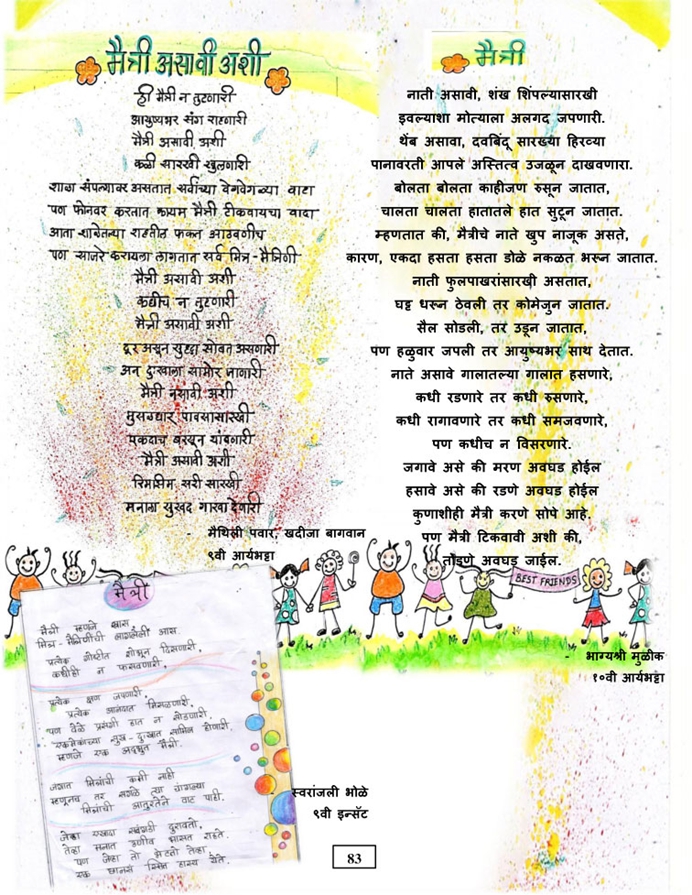 मैत्री असावी अशी
ही मैत्री न तुटणारी
आयुष्यभर संग राहणारी
मैत्री असावी अशी
कळी सारखी खुलणारी
शाळा संपल्यावर असतात सर्वांच्या वेगवेगळ्या वाटा
पण फोनवर करतात कायम मैत्री टीकवायचा वादा
आता शाळेतल्या राहतील फक्त आठवणीच
पण साजरे करायला लागतात सर्व मित्र-मैत्रिणी
मैत्री असावी अशी
कधीच न तुटणारी
मैत्री असावी अशी
दूर असून सुद्धा सोबत असणारी
अन् दुःखाला सामोर जाणारी
मैत्री नसावी अशी
मुसळधार पावसासारखी
एकदाच बरसून थांबणारी
मैत्री असावी अशी
रिमझिम सरी सारखी
मनाला सुखद गारवा देणारी
- मैथिली पवार, खदीजा बागवान
९वी आर्यभट्टा
मैत्री
नाती असावी, शंख शिंपल्यासारखी
इवल्याशा मोत्याला अलगद जपणारी.
थेंब असावा, दवबिंदू सारख्या हिरव्या
पानावरती आपले अस्तित्व उजळून दाखवणारा.
बोलता बोलता काहीजण रुसून जातात,
चालता चालता हातातले हात सुटून जातात.
म्हणतात की, मैत्रीचे नाते खुप नाजूक असते,
कारण, एकदा हसता हसता डोळे नकळत भरून जातात.
नाती फुलपाखरांसारखी असतात,
घट्ट धरून ठेवली तर कोमेजुन जातात.
सैल सोडली, तर उडून जातात,
पण हळुवार जपली तर आयुष्यभर साथ देतात.
नाते असावे गालातल्या गालात हसणारे,
कधी रडणारे तर कधी रुसणारे,
कधी रागावणारे तर कधी समजवणारे,
पण कधीच न विसरणारे.
जगावे असे की मरण अवघड होईल
हसावे असे की रडणे अवघड होईल
कुणाशीही मैत्री करणे सोपे आहे.
पण मैत्री टिकवावी अशी की,
तोडणे अवघड जाईल.
BEST FRIENDS
- भाग्यश्री मुळीक
१०वी आर्यभट्टा
मैत्री
मैत्री म्हणजे खास
मित्र-मैत्रिणींची लागलेली आस
प्रत्येक गोष्टीत शोभून दिसणारी,
कधीही न फसवणारी,
प्रत्येक क्षण जपणारी,
प्रत्येक आनंदात मिसळणारी,
पण वेळे प्रसंगी हात न सोडणारी,
एकमेकांच्या सुख-दुःखात सामिल होणारी.
म्हणजे एक अद्भूत मैत्री.
जगात मित्रांची कमी नाही
म्हणूनच तर सगळे त्या चांगल्या
मित्रांची आतुरतेने वाट पाही.
जेव्हा एखादा सवंगडी दुरावतो,
तेव्हा मनात उणीव भासत राहते.
पण जेव्हा तो भेटतो तेव्हा
एक छानसं स्मित हास्य येते.
स्वरांजली भोळे
९वी इन्सॅट
83